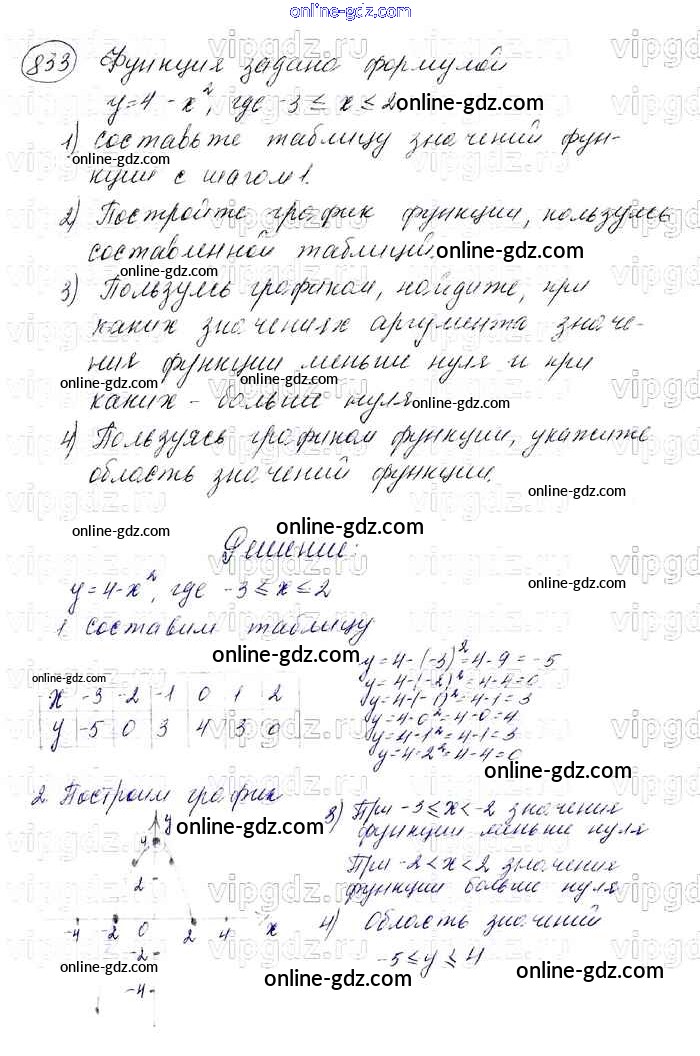 online-gdz.com
833 Функция задана формулой
y=4-x², где -3 ≤ x ≤ 2 online-gdz.com
1) составьте таблицу значений фун-
online-gdz.com
кции с шагом 1.
2) Постройте график функции, пользуясь
составленной таблицей. online-gdz.com
online-gdz.com
3) Пользуясь графиком, найдите, при
каких значениях аргумента значе-
ния функции меньше нуля и при
online-gdz.com online-gdz.com
каких - больше нуля. online-gdz.com
4) Пользуясь графиком функции, укажите
область значений функции.
online-gdz.com
online-gdz.com online-gdz.com
Решение:
y=4-x², где -3 ≤ x ≤ 2 online-gdz.com
1. составим таблицу
online-gdz.com
online-gdz.com
x -3 -2 -1 0 1 2
y -5 0 3 4 3 0
y=4-(-3)²=4-9=-5
y=4-(-2)²=4-4=0
y=4-(-1)²=4-1=3
y=4-0²=4-0=4
y=4-1²=4-1=3
y=4-2²=4-4=0
online-gdz.com
online-gdz.com
2. Построим график
online-gdz.com
y
4
2
-4 -2 0 2 4 x
-2
-4
3) При -3 ≤ x < -2 значения
функции меньше нуля
При -2 < x < 2 значения
функции больше нуля
4) Область значений
-5 ≤ y ≤ 4
online-gdz.com
online-gdz.com
online-gdz.com
vipgdz.ru vipgdz.ru